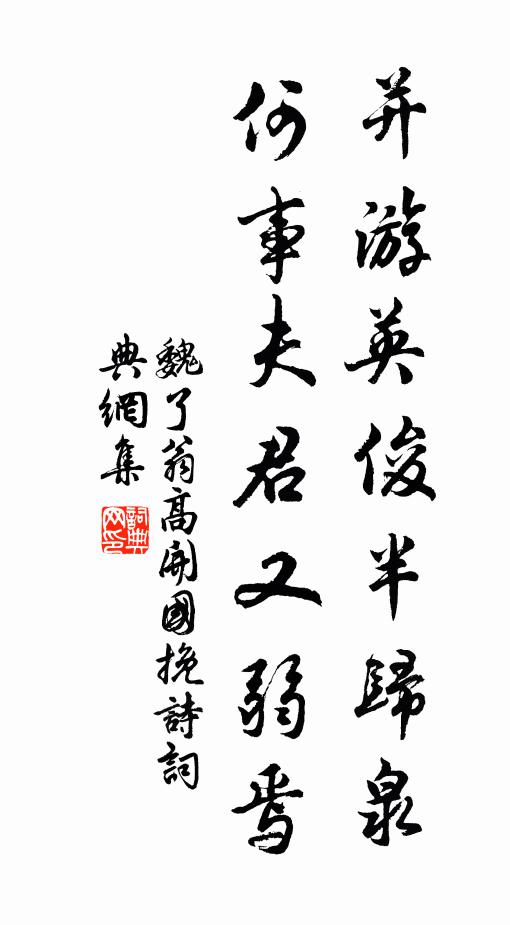 并游英俊半歸泉
何事夫君又弱焉
魏了翁高開國挽詩詞
典網集
詞典
网印